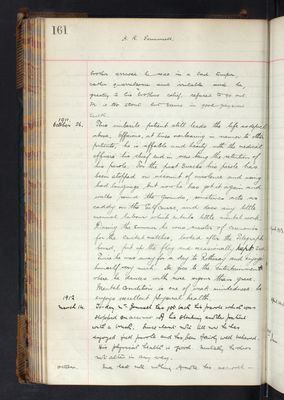 161
brother arrived he was in a bad temper
rather quarrelsome and irritable and he,
greatly to his brother's relief, refused to go out.
He is too stout but seems in good physical
health.
1911
October 26.
This imbecile patient still leads the life as depicted
above, offensive, at times overbearing in manner to other
patients, he is affable and hearty with the medical
officers his chief aim in so doing being the retention of
his parole. On the past his parole has
been stopped on account of insolence and using
bad language but now he has got it again and
walks round the grounds, sometimes acts as
caddy on the Golf Course, never does any little
manual labour which entails little mental work.
During the summer he was master of ceremonies
for the cricket matches, looked after the telegraph
board, put up the flag and occasionally kept
Once he was away for a day to Rothesay and enjoyed
himself very much. He goes to the Entertainments
where he dances with more vigour than grace.
Mental condition is one of weak mindedness; he
enjoys excellent physical health.
1912
March 14.
Today Mr Gemmell has got back his parole which was
stopped on account of his striking another patient
with a brush. Since last note till now he has
enjoyed full parole and has been fairly well behaved.
His physical health is good. Mentally he does
not alter in any way.
October